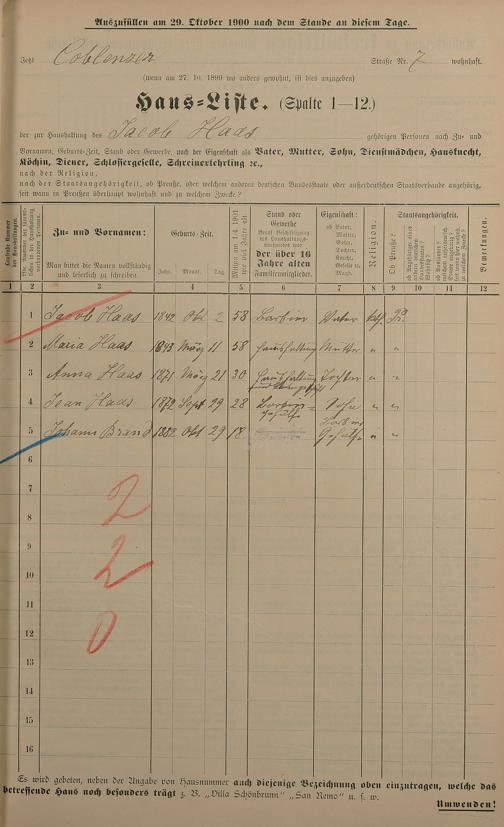 Auszufüllen am 29. Oktober 1900 nach dem Stande an diesem Tage.
Jetzt Coblenzer Straße Nr. 7 wohnhaft.
(wenn am 27. 10. 1899 wo anders gewohnt, ist dies anzugeben)
Haus-Liste. (Spalte 1—12.)
der zur Haushaltung des Jacob Haas gehörigen Personen nach Zu- und
Vornamen, Geburts-Zeit, Stand oder Gewerbe, nach der Eigenschaft als Vater, Mutter, Sohn, Dienstmädchen, Hausknecht,
Köchin, Diener, Schlossergeselle, Schreinerlehrling ec.,
nach der Religion,
nach der Staatsangehörigkeit, ob Preuße, oder welchem anderen deutschen Bundesstaate oder außerdeutschen Staatsverbande angehörig,
wenn in Preußen überhaupt wohnhaft und zu welchem Zwecke?
Zu- und Vornamen: Geburts-Zeit. Stand oder Gewerbe Eigenschaft: Religion. Staatsangehörigkeit. Bemerkungen.
Man bittet die Namen vollständig und leserlich zu schreiben
Jahr. Monat. Tag.
der über 16 Jahre alten Familienmitglieder.
ob Vater, Mutter, Sohn, Tochter, Knecht, Geselle ec. Magd.
Ob Preuße?
1 2 3 4 5 6 7 8 9 10 11 12
1 Jacob Haas 1842 Okt 2 58 Barbier Vater kath. Pr.
2 Maria Haas 1843 März 11 58 Haushaltung Mutter " "
3 Anna Haas 1871 März 21 30 Haushaltung Tochter " "
4 Jean Haas 1872 Sept 29 28 Barbier- Gehülfe Sohn " "
5 Johann Brand 1882 Okt 29 18 Barbier Gehülfe " "
6
7
2
8
9
2
10
11
0
12
13
14
15
16
Es wird gebeten, neben der Angabe von Hausnummer auch diejenige Bezeichnung oben einzutragen, welche das
betreffende Haus noch besonders trägt z. B. „Villa Schönbrunn" „San Remo" u. s. w.
Umwenden!